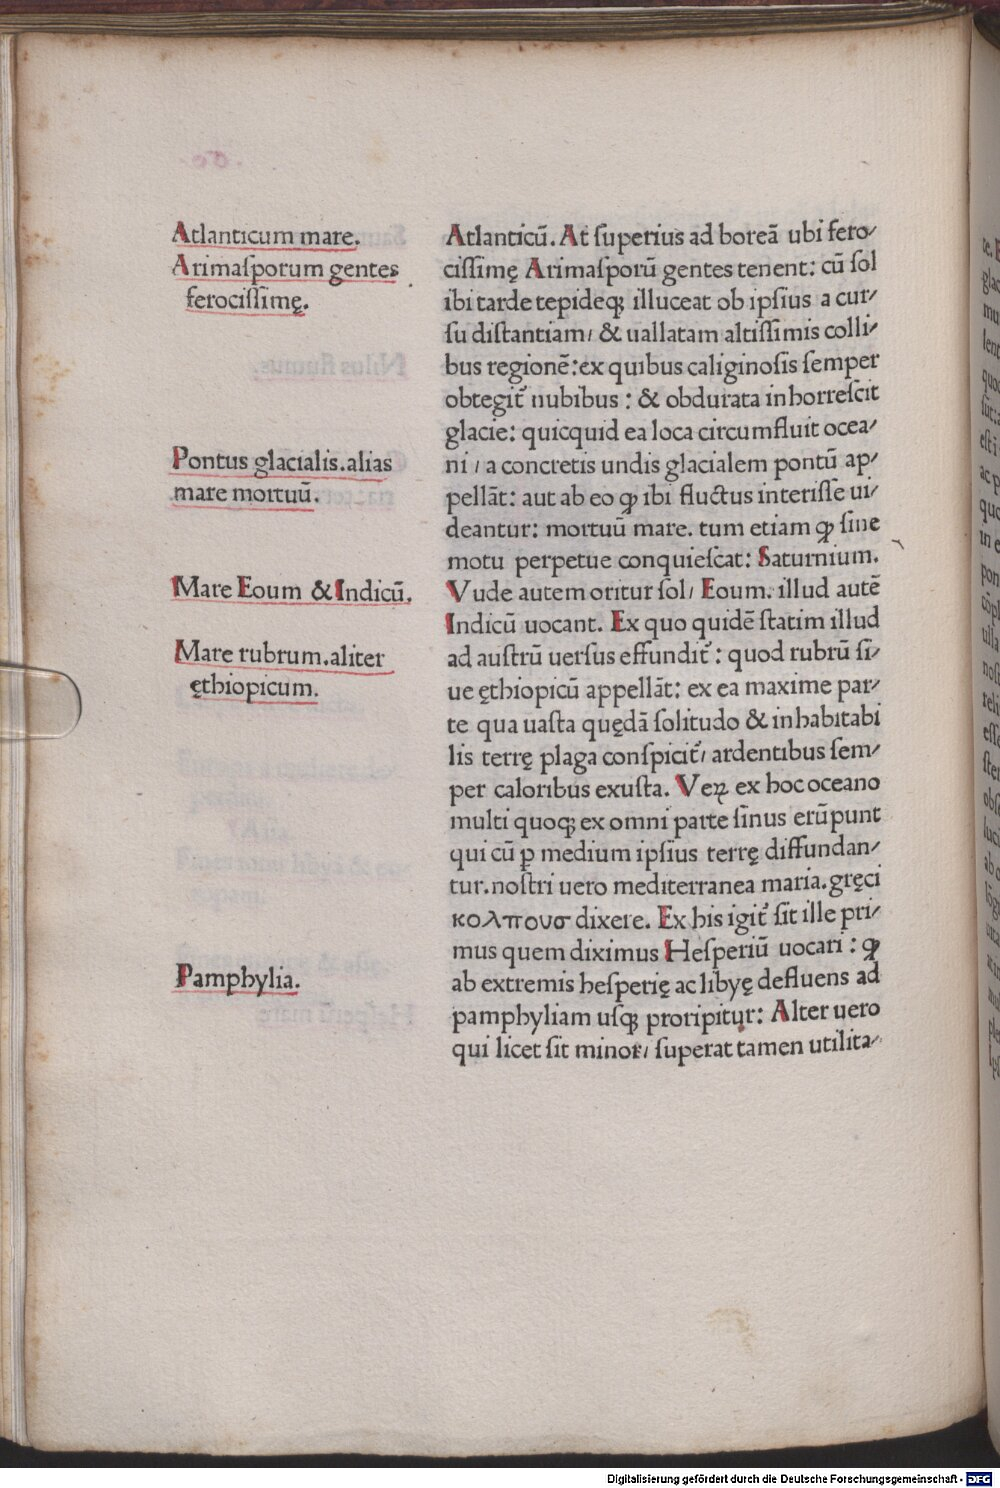 Atlanticum mare.
Arimaſporum gentes
ferociſſimę.
Pontus glacialis.alias
mare mortuū.
Mare Eoum & Indicū.
Mare rubrum.aliter
ęthiopicum.
Pamphylia.
Atlanticū. At ſuperius ad boreā ubi fero⸗
ciſſimę Arimaſporū gentes tenent: cū ſol
ibi tarde tepideq; illuceat ob ipſius a cur⸗
ſu diſtantiam/ & uallatam altiſſimis colli⸗
bus regionē:ex quibus caliginoſis ſemper
obtegit᷑ nubibus : & obdurata inhorreſcit
glacie: quicquid ea loca circumfluit ocea⸗
ni / a concretis undis glacialem pontū ap⸗
pellāt: aut ab eo ꝙ ibi fluctus interiſſe ui⸗
deantur: mortuū mare. tum etiam ꝙ ſine
motu perpetue conquieſcat: Saturnium.
Vude autem oritur ſol/ Eoum. illud autē
Indicū uocant. Ex quo quidē ſtatim illud
ad auſtrū uerſus effundit᷑ : quod rubrū ſi⸗
ue ęthiopicū appellāt: ex ea maxime par⸗
te qua uaſta quędā ſolitudo & inhabitabi
lis terrę plaga conſpicit᷑/ ardentibus ſem⸗
per caloribus exuſta. Veꝝ ex hoc oceano
multi quoq; ex omni parte ſinus erūpunt
qui cū ꝑ medium ipſius terrę diffundan⸗
tur.noſtri uero mediterranea maria.gręci
κολπουσ dixere. Ex his igit᷑ ſit ille pri⸗
mus quem diximus Heſperiū uocari : ꝙ
ab extremis heſperię ac libyę defluens ad
pamphyliam uſq; proripitur: Alter uero
qui licet ſit minor/ ſuperat tamen utilita⸗
Digitalisierung gefördert durch die Deutsche Forschungsgemeinschaft - DFG